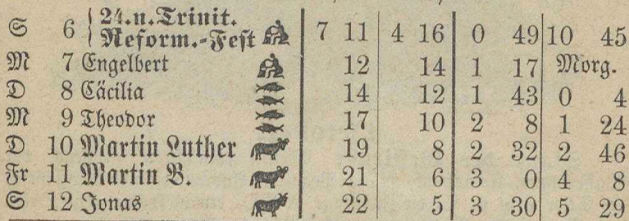 S 6 { 24.n.Trinit. Reform.-Fest 7 11 4 16 0 49 10 45
M 7 Engelbert 12 14 1 17 Morg.
D 8 Cäcilia 14 12 1 43 0 4
M 9 Theodor 17 10 2 8 1 24
D 10 Martin Luther 19 8 2 32 2 46
Fr 11 Martin B. 21 6 3 0 4 8
S 12 Jonas 22 5 3 30 5 29